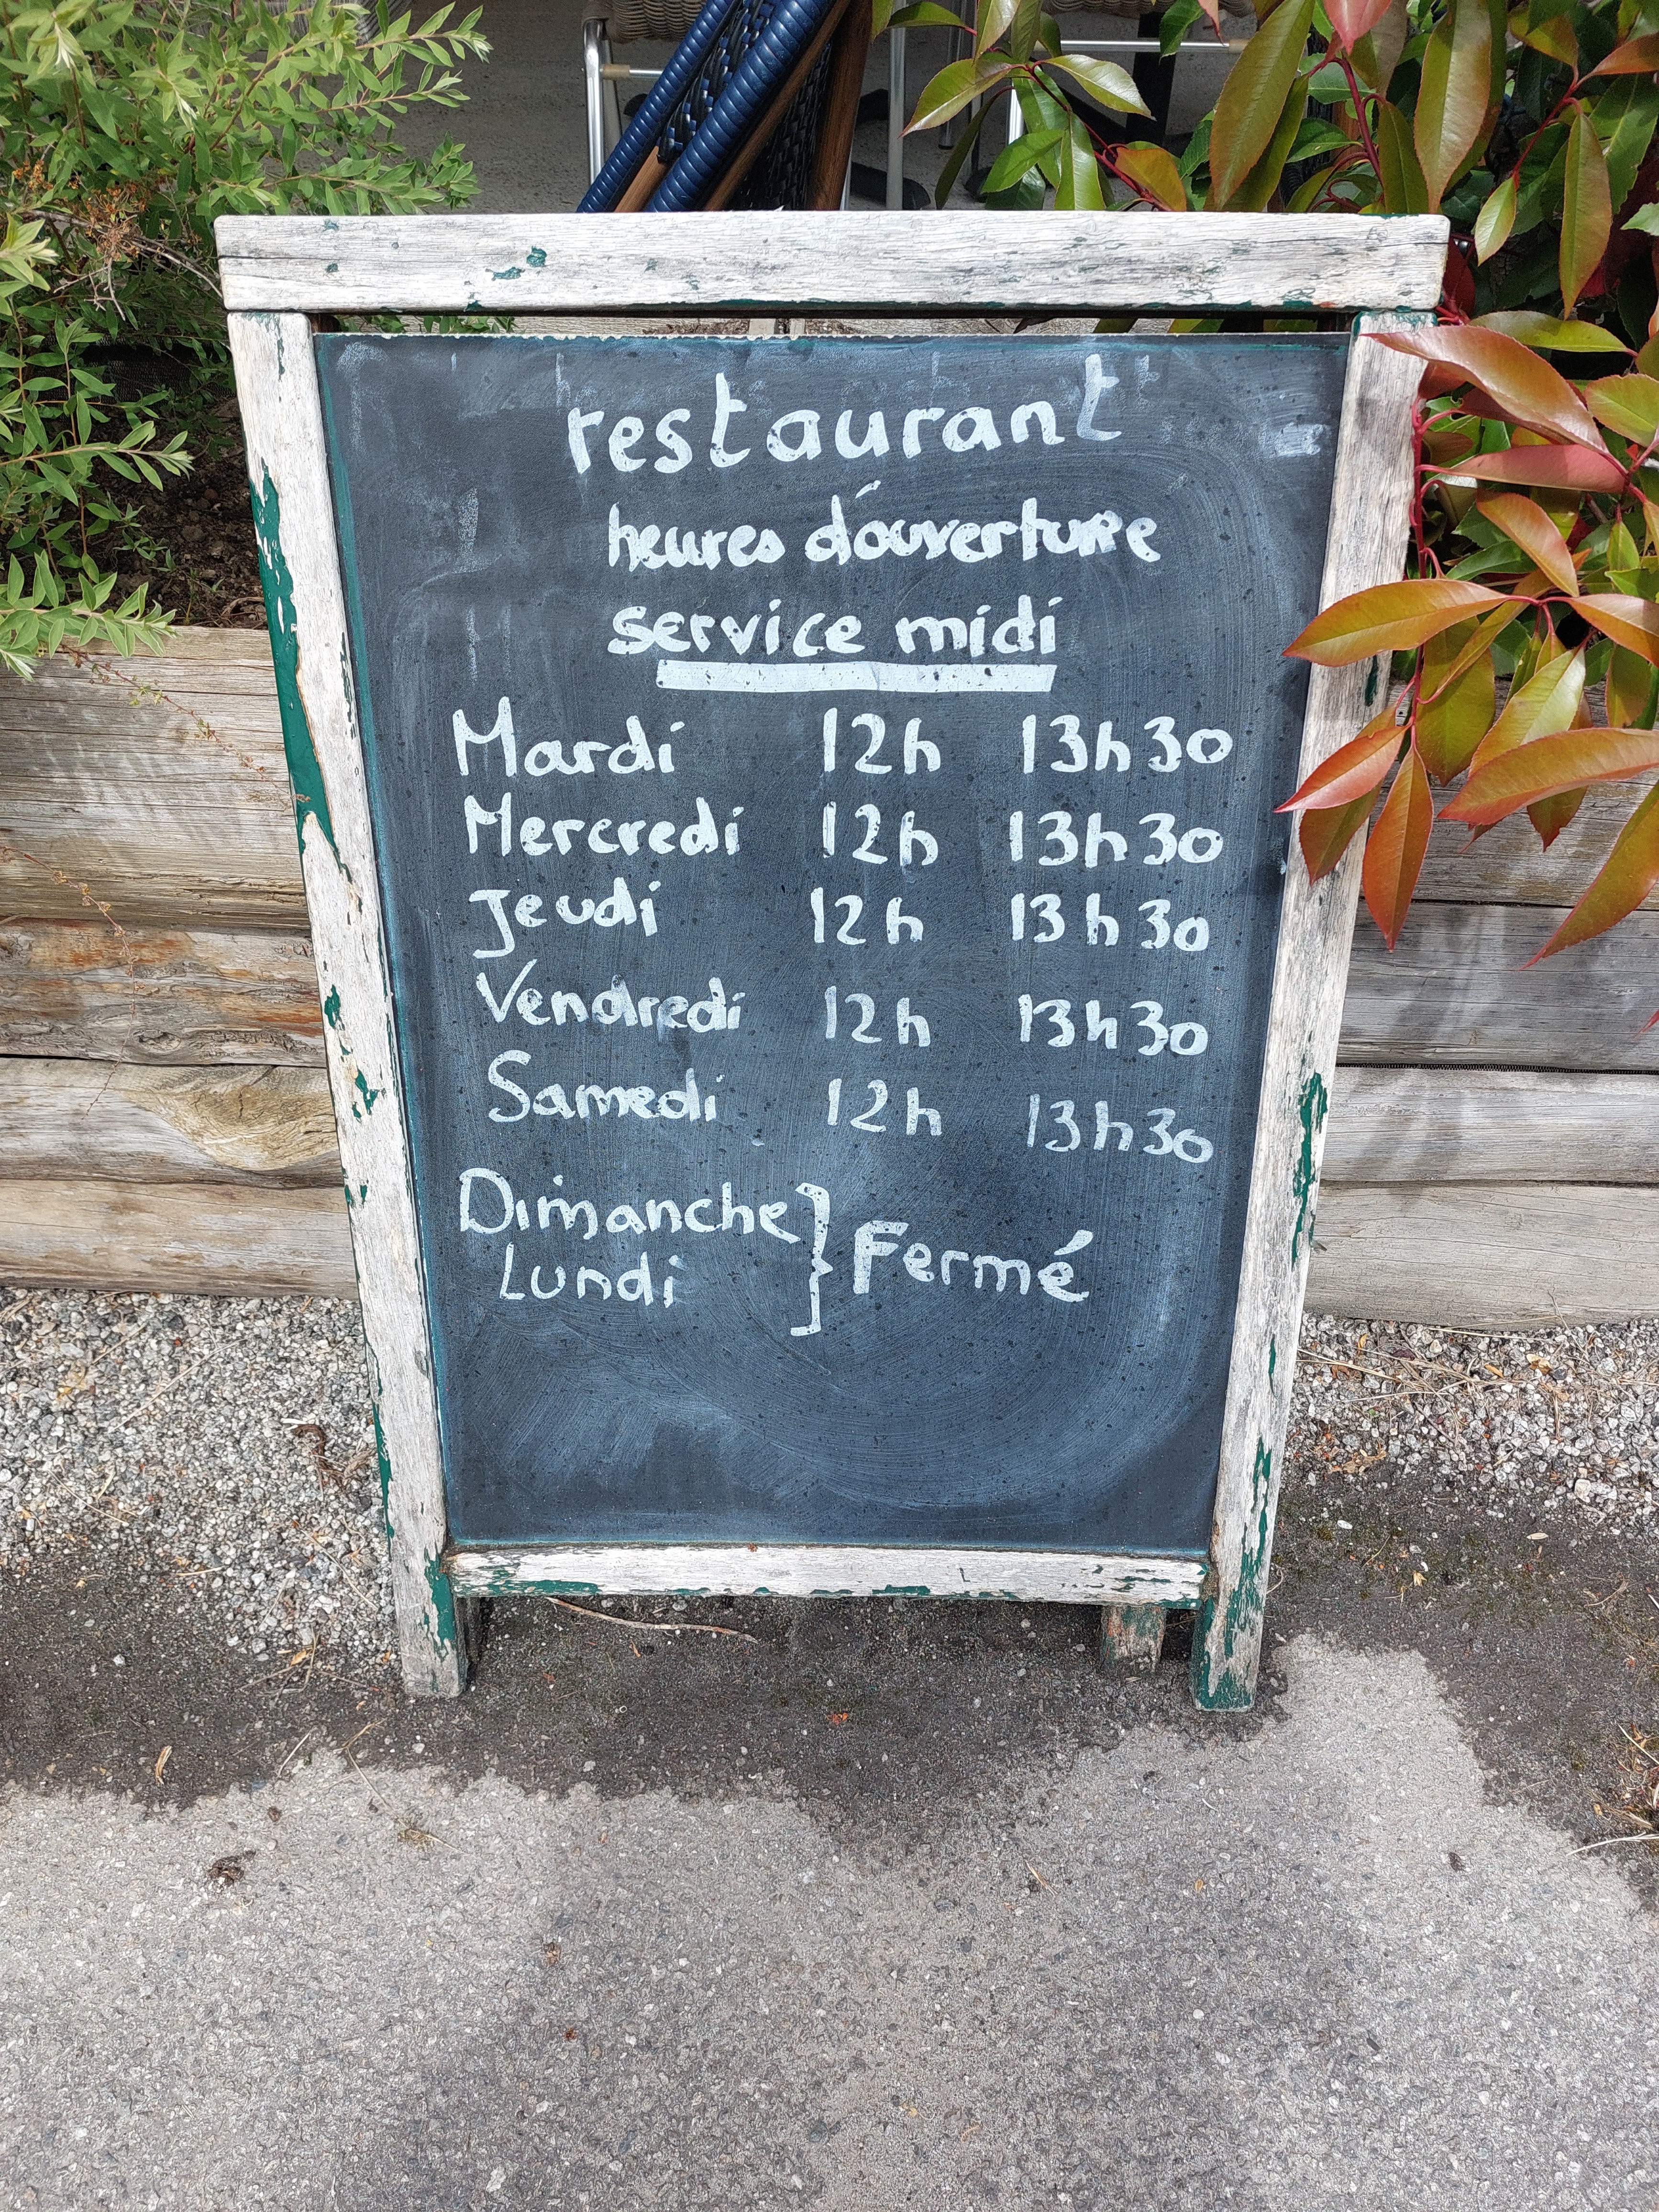 restaurant
heures d'ouverture
service midi
Mardi 12h 13h30
Mercredi 12h 13h30
Jeudi 12h 13h30
Vendredi 12h 13h30
Samedi 12h 13h30
Dimanche
Lundi } Fermé